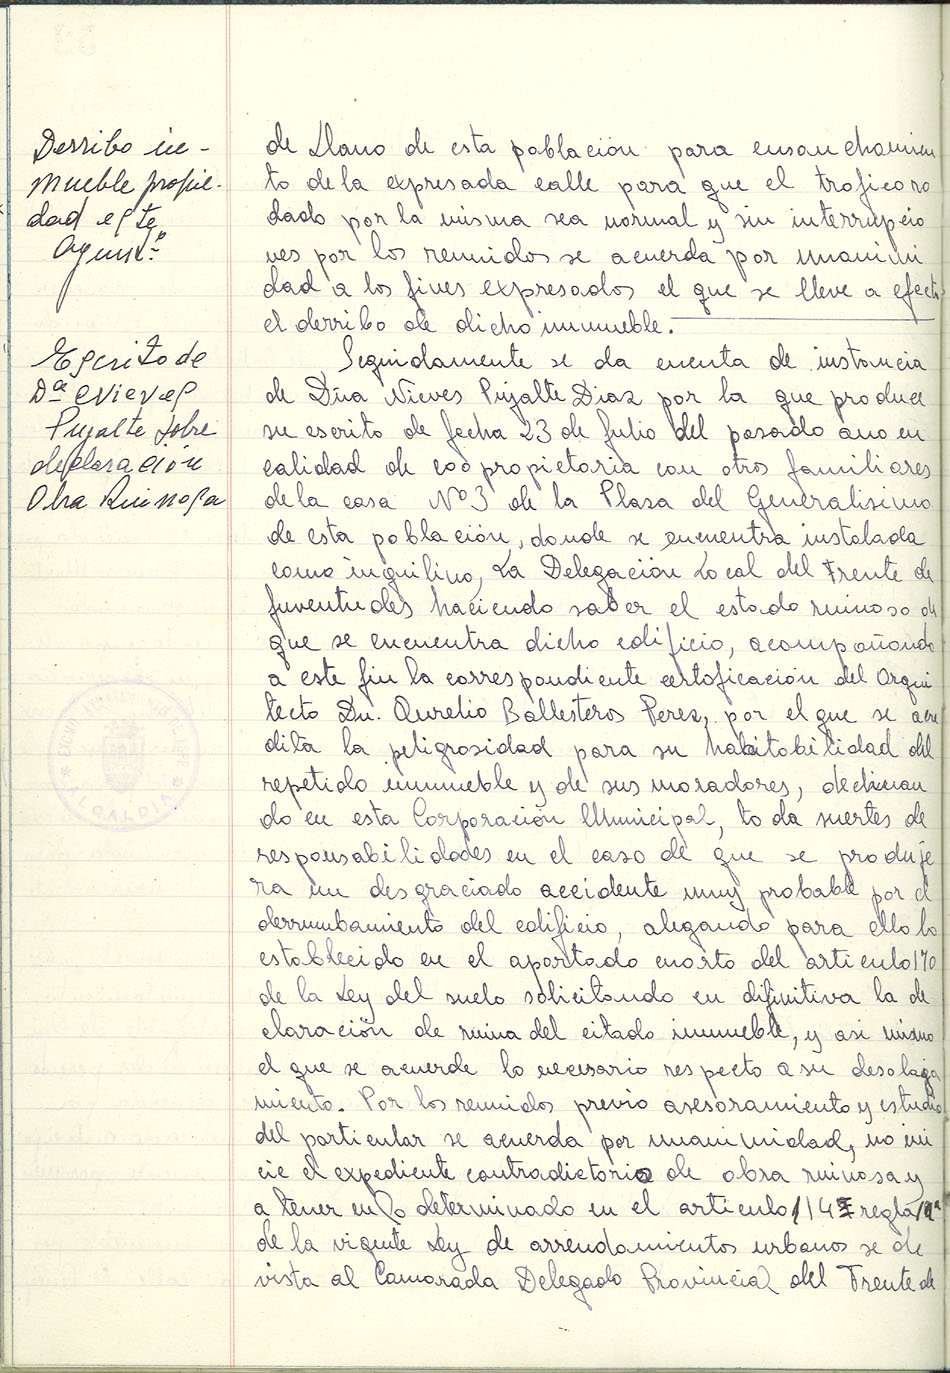 Derribo in-
mueble propie-
dad este
Ayunt.º
de Llano de esta población para ensanchamien
to de la expresada calle para que el trafico ro
dado por la misma sea normal y sin interrupcio
nes por los reunidos se acuerda por unanimi
dad a los fines expresados el que se lleve a efecto
el derribo de dicho inmueble.
Escrito de
Dª Nieves
Pujalte sobre
declaración
Obra Ruinosa
Seguidamente se da cuenta de instancia
de Dña Nieves Pujalte Diaz por la que produce
su escrito de fecha 23 de Julio del pasado año en
calidad de coopropietaria con otros familiares
de la casa Nº 3 de la Plasa del Generalisimo
de esta población, donde se encuentra instalada
como inquilino, La Delegación Local del Frente de
Juventudes haciendo saber el estado ruinoso de
que se encuentra dicho edificio, acompañando
a este fin la correspondiente certoficación del Arqui
tecto Dn. Aurelio Ballesteros Perez, por el que se acre
dita la peligrosidad para su habitabilidad del
repetido inmueble y de sus moradores, declinan
do en esta Corporación Municipal, toda suertes de
responsabilidades en el caso de que se produje
ra un desgraciado accidente muy probable por el
derrumbamiento del edificio, alegando para ello lo
establecido en el apartado cuarto del articulo 170
de la Ley del suelo solicitando en difinitiva la de
claración de ruina del citado inmueble, y asi mismo
el que se acuerde lo necesario respecto a su desoloja
miento. Por los reunidos previo asesoramiento y estudio
del particular se acuerda por unanimidad, no ini
cie el expediente contradictorio de obra ruinosa y
a tener en lo determinado en el articulo 114 regla
de la vigente Ley de arrendamientos urbanos se de
vista al Camarada Delegado Provincial del Frente de
ALCALDIA